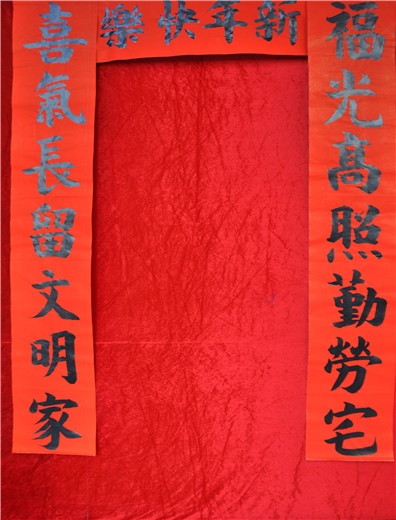 新年快樂
福光高照勤勞宅
喜氣長留文明家